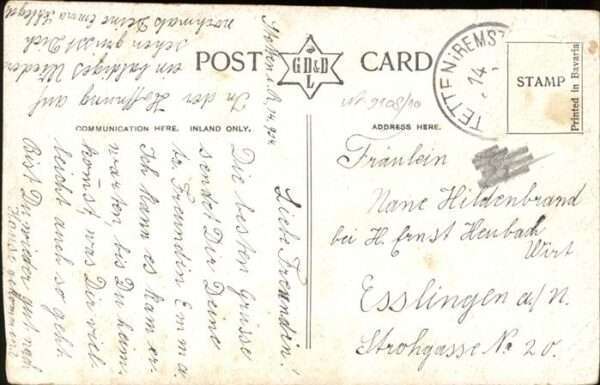 POST CARD
G.D.&D.
L
STAMP
Printed in Bavaria
TETTEN i. REMST
14
COMMUNICATION HERE. INLAND ONLY.
ADDRESS HERE.
Fräulein
Nane Hildenbrand
bei H. Ernst Heubach
Wirt
Esslingen a/N.
Strohgasse No 20.
Liebe Freundin!
Die besten Grüsse
sendet Dir Deine
Freundin Emma.
Ich kann es kam er-
warten, bis Du heim
komst, was Dir viel-
leicht auch so geht.
Bist Du wieder gut nach
gekommen
In der Hoffnung auf
ein baldiges Wieder-
sehen grüsst Dich
nochmals Deine Emma